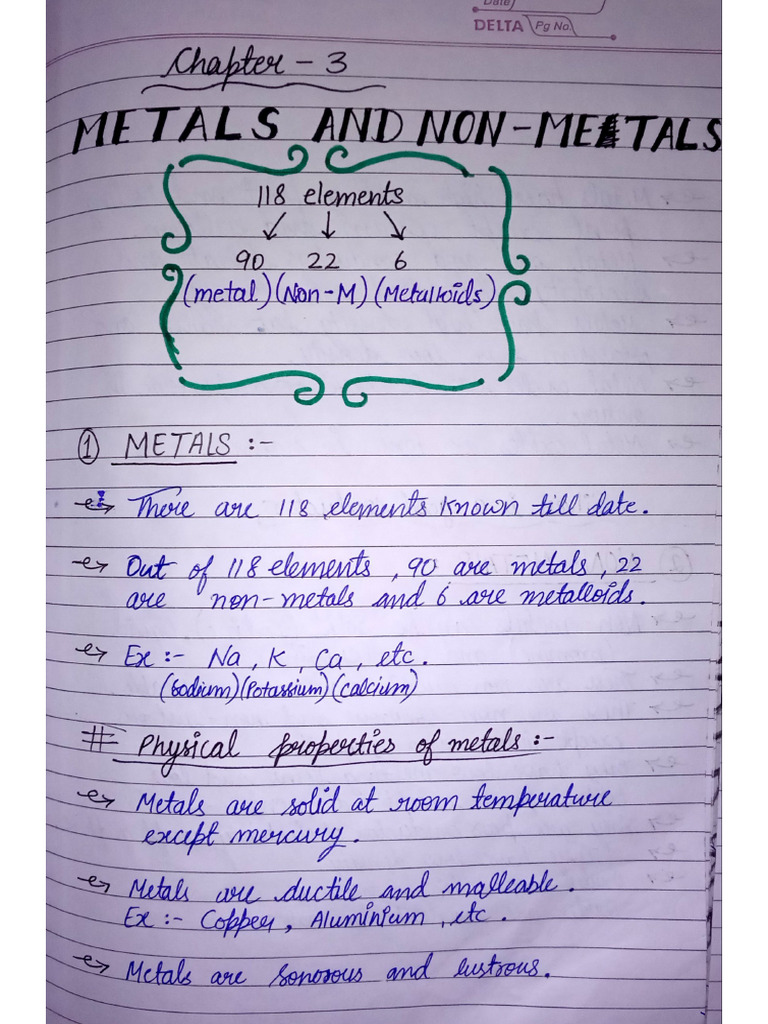 Date
DELTA Pg No.
Chapter - 3
METALS AND NON-METALS
118 elements
90 22 6
(metal) (Non-M) (Metalloids)
① METALS :-
There are 118 elements known till date.
Out of 118 elements, 90 are metals, 22
are non-metals and 6 are metalloids.
Ex :- Na, K, Ca, etc.
(Sodium) (Potassium) (Calcium)
# Physical properties of metals :-
Metals are solid at room temperature
except mercury.
Metals are ductile and malleable.
Ex :- Copper, Aluminium, etc.
Metals are sonorous and lustrous.